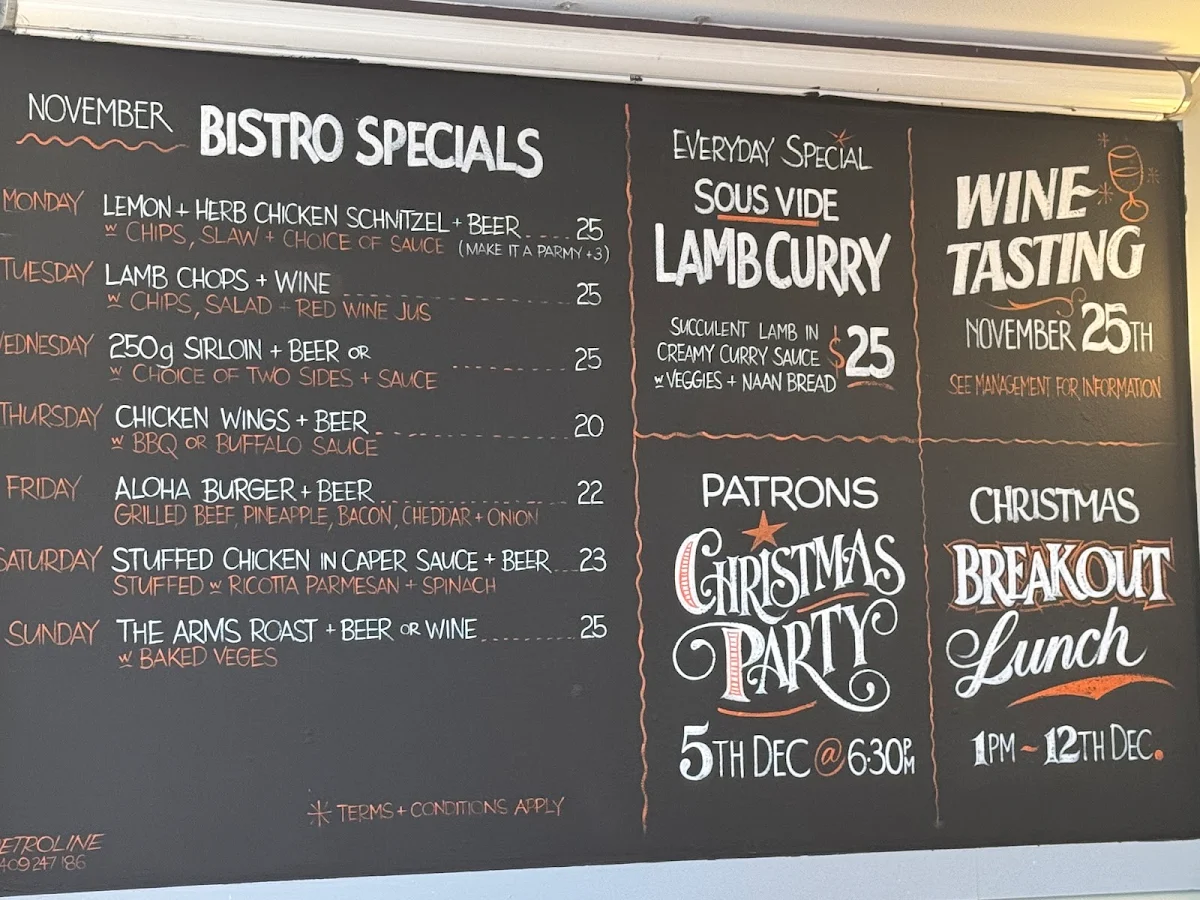 NOVEMBER BISTRO SPECIALS
MONDAY LEMON + HERB CHICKEN SCHNITZEL + BEER 25
w CHIPS, SLAW + CHOICE OF SAUCE (MAKE IT A PARMY +3)
TUESDAY LAMB CHOPS + WINE 25
w CHIPS, SALAD + RED WINE JUS
EDNESDAY 250g SIRLOIN + BEER OR 25
w CHOICE OF TWO SIDES + SAUCE
THURSDAY CHICKEN WINGS + BEER 20
w BBQ OR BUFFALO SAUCE
FRIDAY ALOHA BURGER + BEER 22
GRILLED BEEF, PINEAPPLE, BACON, CHEDDAR + ONION
SATURDAY STUFFED CHICKEN IN CAPER SAUCE + BEER 23
STUFFED w RICOTTA PARMESAN + SPINACH
SUNDAY THE ARMS ROAST + BEER OR WINE 25
w BAKED VEGES
* TERMS + CONDITIONS APPLY
ETROLINE
409 247 186
EVERYDAY SPECIAL
SOUS VIDE
LAMB CURRY
SUCCULENT LAMB IN
CREAMY CURRY SAUCE $25
w VEGGIES + NAAN BREAD
WINE
TASTING
NOVEMBER 25TH
SEE MANAGEMENT FOR INFORMATION
PATRONS
CHRISTMAS
PARTY
5TH DEC @ 6:30PM
CHRISTMAS
BREAKOUT
Lunch
1PM ~ 12TH DEC.